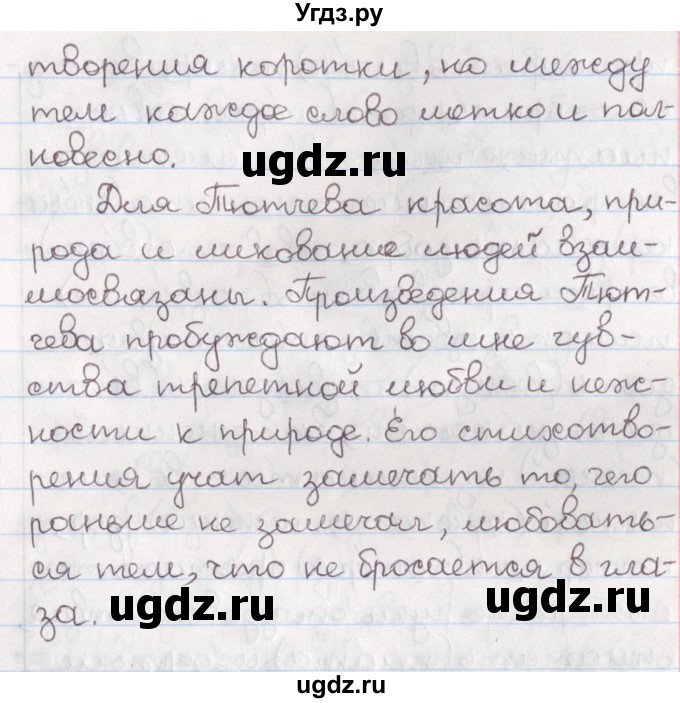 Угдз.ру
творения коротки, но между
тем каждое слово метко и пол-
новесно.
ugdz.ru
Для Тютчева красота, при-
рода и ликование людей взаи-
мосвязаны. Произведения Тют-
чева пробуждают во мне чув-
ства трепетной любви и неж-
ности к природе. Его стихотво-
рения учат замечать то, чего
раньше не замечал, любовать-
ся тем, что не бросается в гла-
за.
ugdz.ru
ugdz.ru
ugdz.ru